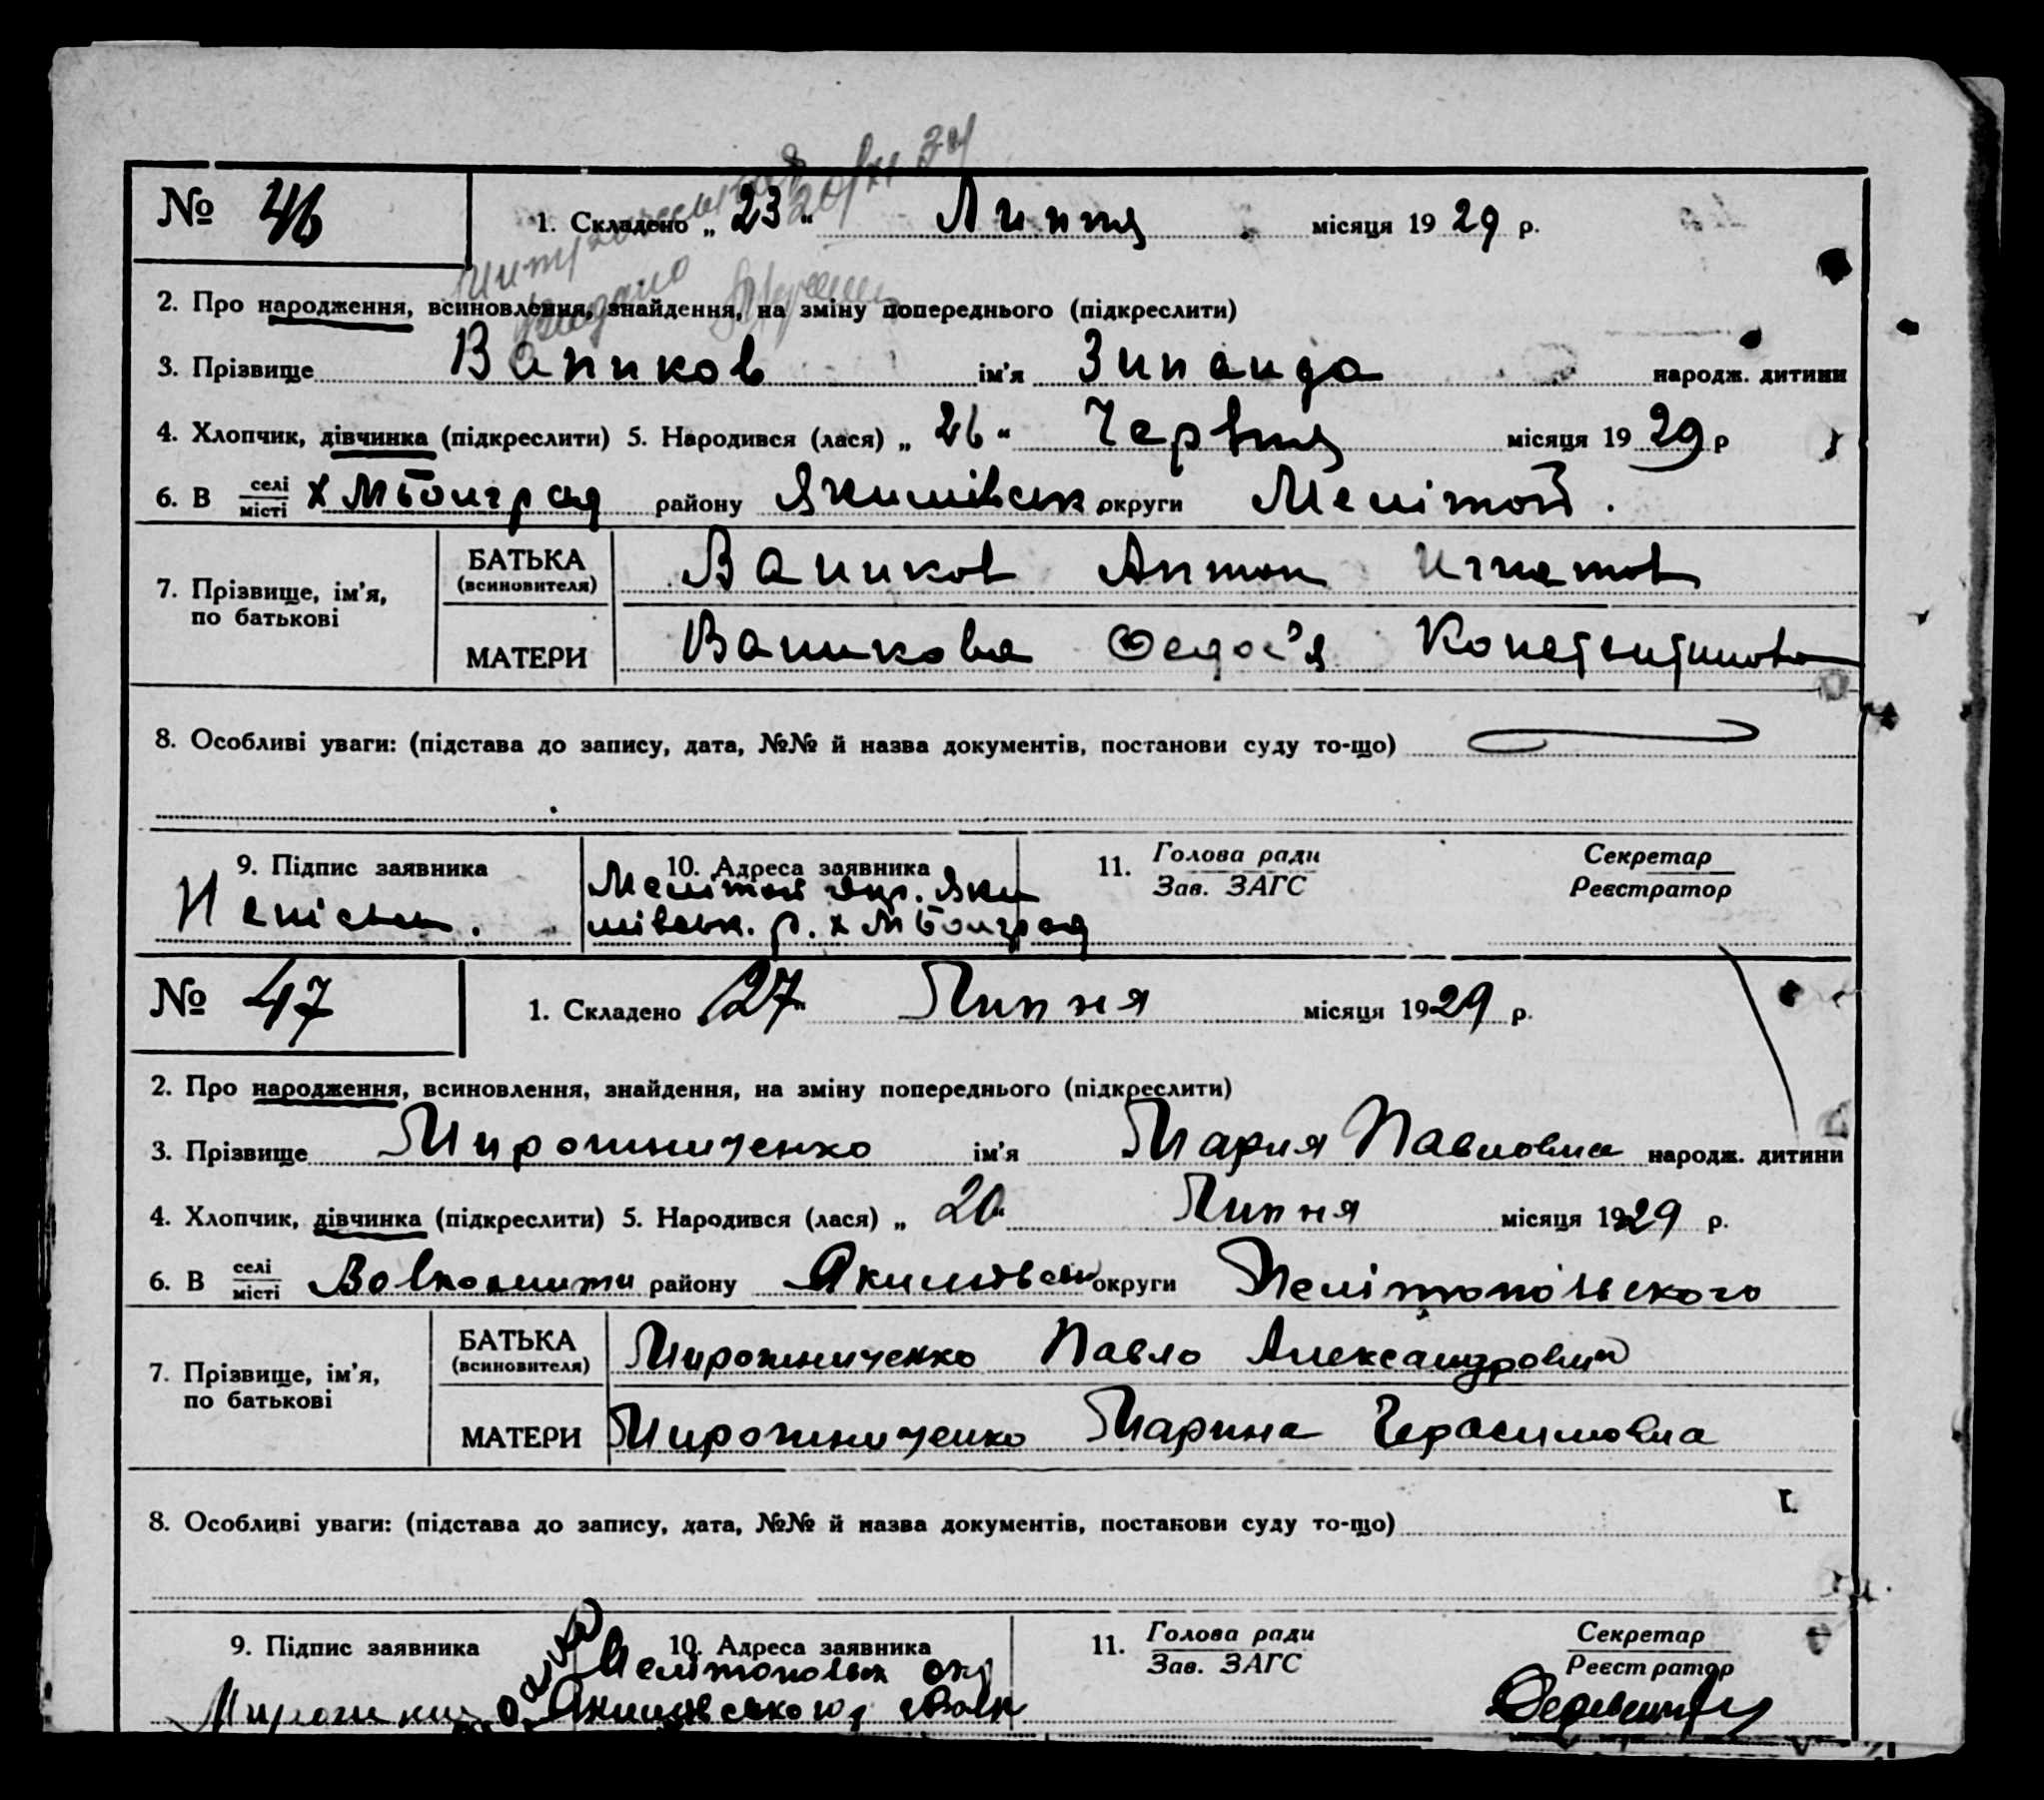 № 46 1. Складено „ 23 “ Липня місяця 19 29 р.
2. Про народження, всиновлення, знайдення, на зміну попереднього (підкреслити)
3. Прізвище Ваников ім'я Зинаида народж. дитини
4. Хлопчик, дівчинка (підкреслити) 5. Народився (лася) „ 26 “ Червня місяця 19 29 р
6. В селі місті х МБоиград району Якимівськ округи Меліт.
7. Прізвище, ім'я, по батькові
БАТЬКА (всиновителя) Ваников Антон Игнатов
МАТЕРИ Ваникова Федос'я Константинова
8. Особливі уваги: (підстава до запису, дата, №№ й назва документів, постанови суду то-що)
9. Підпис заявника 10. Адреса заявника 11. Голова ради Зав. ЗАГС Секретар Реєстратор
Яки
мівськ. р. х МБоиград
№ 47 1. Складено „ 27 “ Липня місяця 1929 р.
2. Про народження, всиновлення, знайдення, на зміну попереднього (підкреслити)
3. Прізвище Мирошниченко ім'я Мария Павловна народж. дитини
4. Хлопчик, дівчинка (підкреслити) 5. Народився (лася) „ 20 Липня місяця 1929 р.
6. В селі місті району Якимівськ округи Мелітопольского
7. Прізвище, ім'я, по батькові
БАТЬКА (всиновителя) Мирошниченко Павло Александрович
МАТЕРИ Мирошниченко Марина Герасимовна
8. Особливі уваги: (підстава до запису, дата, №№ й назва документів, постанови суду то-що)
9. Підпис заявника 10. Адреса заявника 11. Голова ради Зав. ЗАГС Секретар Реєстратор
Мелітопольск окр